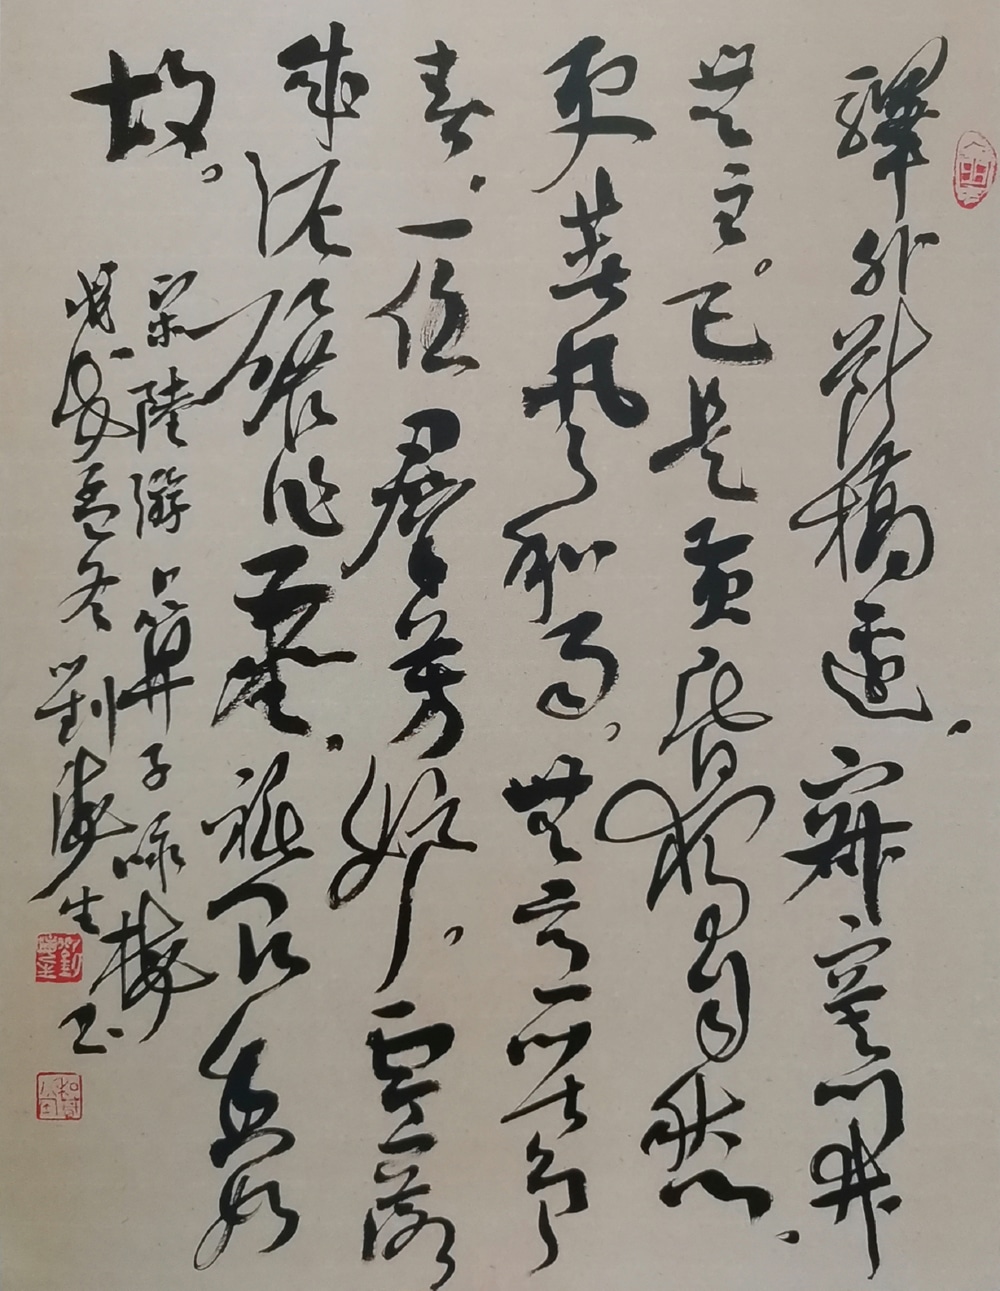 驛外斷橋邊，寂寞開
無主。已是黃昏獨自愁，
更著風和雨。無意苦爭
春，一任羣芳妒。零落
成泥碾作塵，祗有香如
故。
宋陸游卜算子咏梅
孟冬劉海生书
劉海生